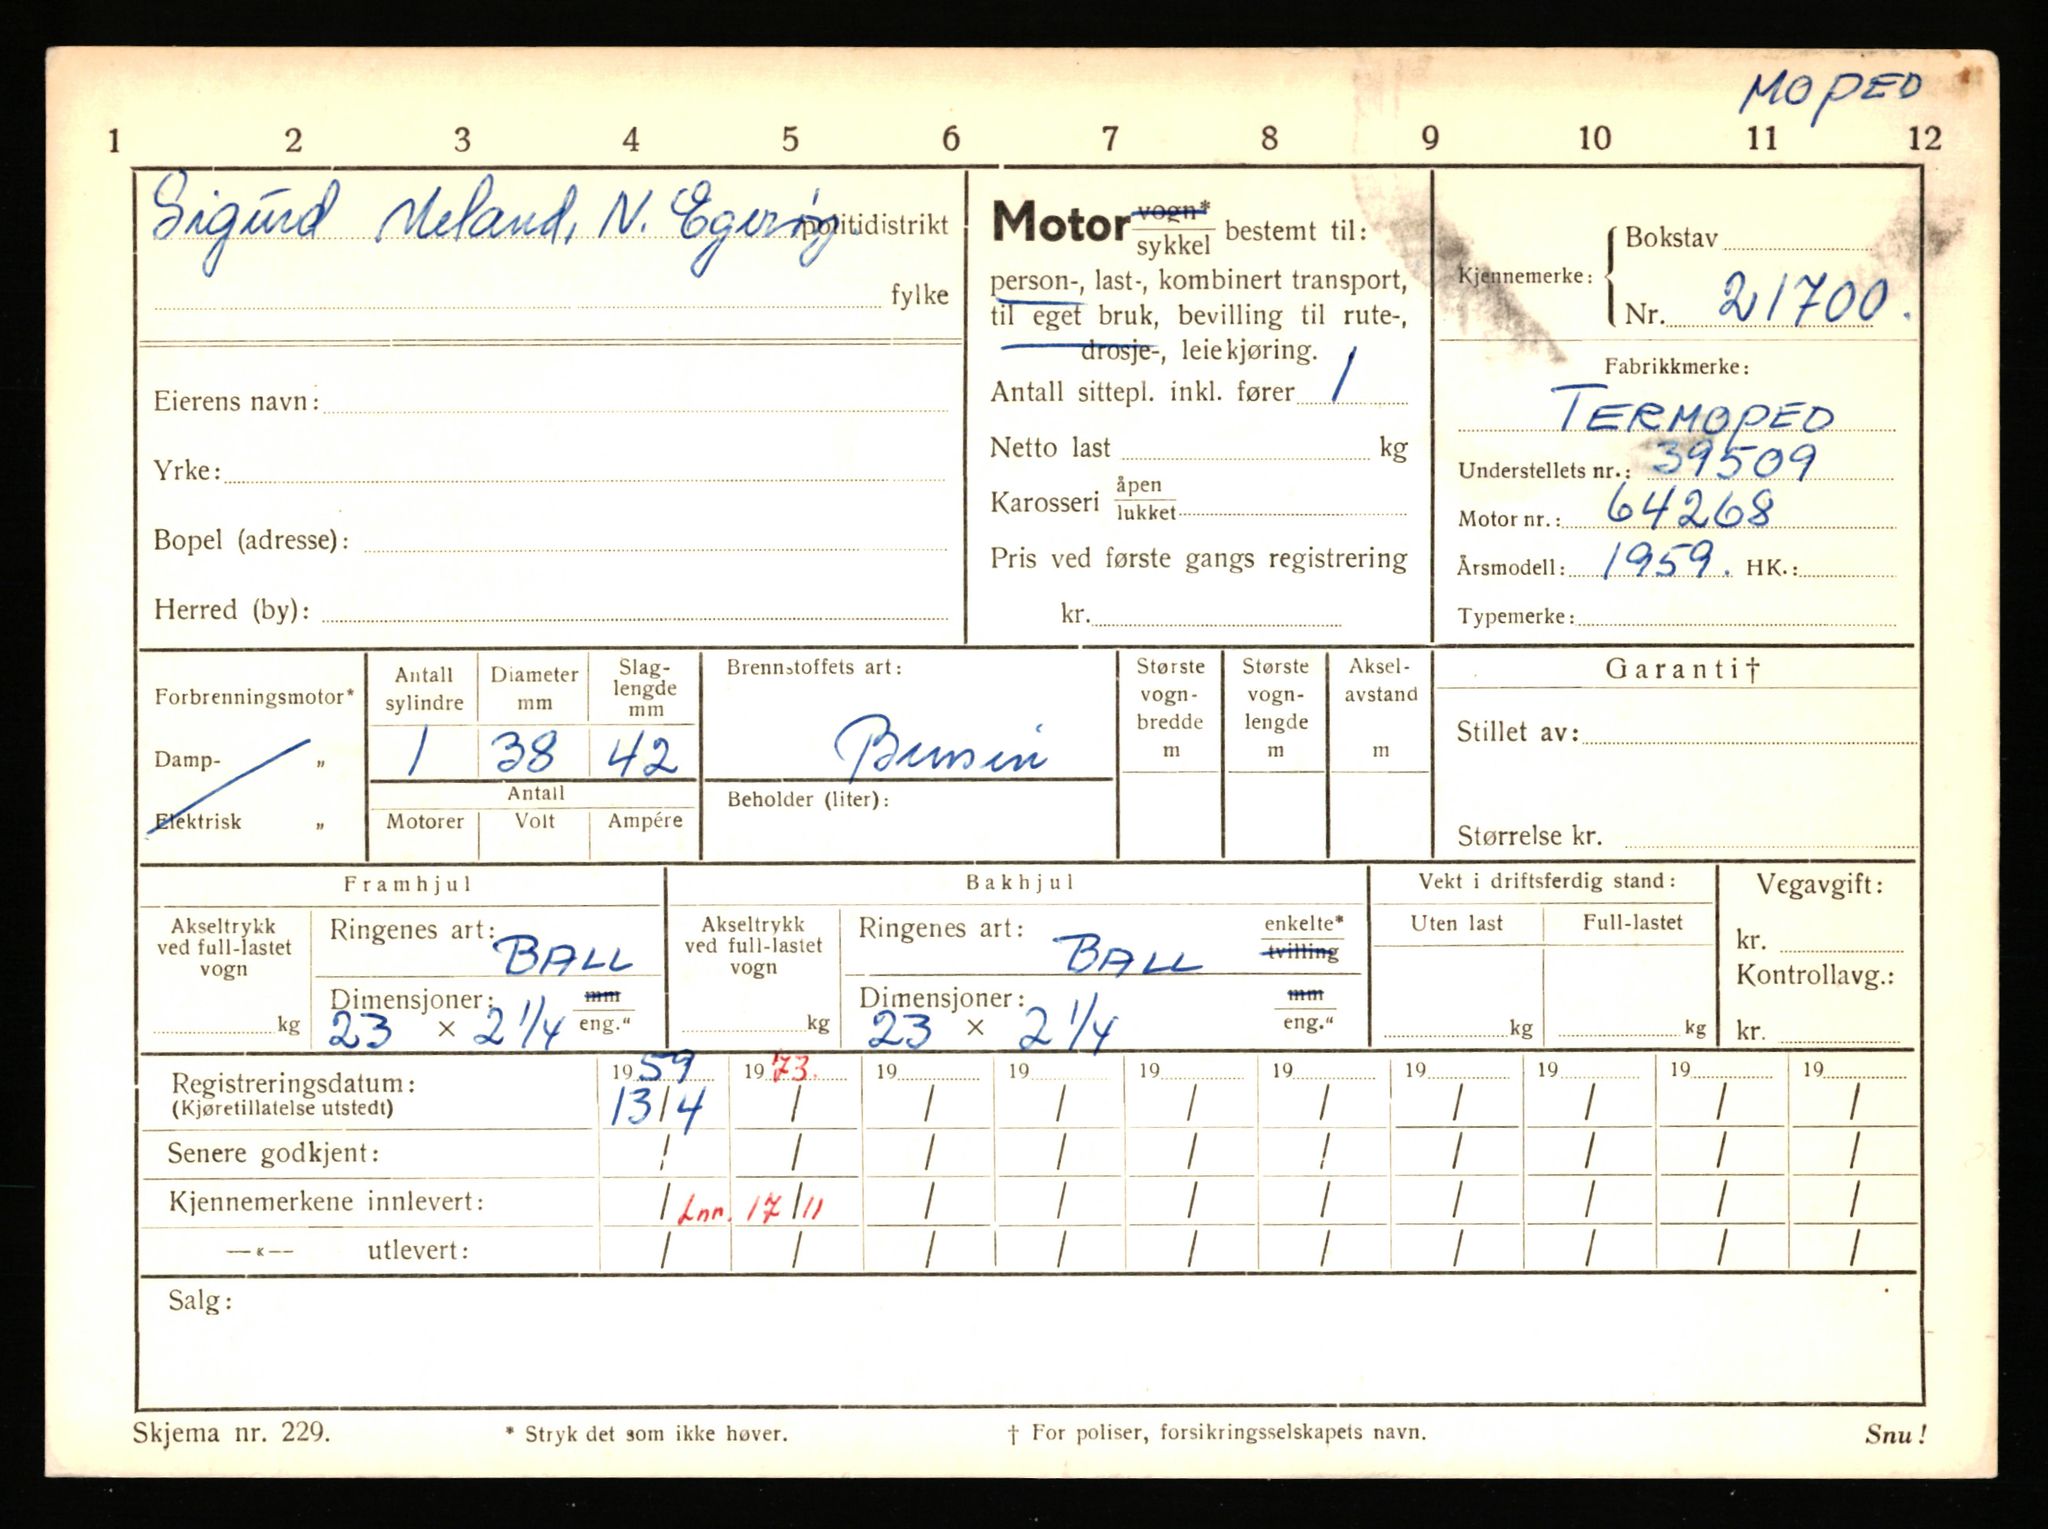 MOPED
1 2 3 4 5 6 7 8 9 10 11 12
Sigurd Meland, N. Egerøy. politidistrikt
fylke
Eierens navn:
Yrke:
Bopel (adresse):
Herred (by):
Motor vogn* sykkel bestemt til:
person-, last-, kombinert transport,
til eget bruk, bevilling til rute-,
drosje-, leiekjøring.
Antall sittepl. inkl. fører 1
Netto last kg
Karosseri åpen lukket
Pris ved første gangs registrering
kr.
Kjennemerke: Bokstav
Nr. 21700.
Fabrikkmerke:
TERMOPED
Understellets nr.: 39509
Motor nr.: 64268
Årsmodell: 1959. HK.:
Typemerke:
Forbrenningsmotor*
Damp- „
Elektrisk „
Antall sylindre 1
Diameter mm 38
Slag-lengde mm 42
Antall
Motorer Volt Ampére
Brennstoffets art:
Bensin
Beholder (liter):
Største vogn-bredde m
Største vogn-lengde m
Aksel-avstand m
Garanti†
Stillet av:
Størrelse kr.
Framhjul
Akseltrykk ved full-lastet vogn
kg
Ringenes art: BALL
Dimensjoner: mm
23 × 2 1/4 eng."
Bakhjul
Akseltrykk ved full-lastet vogn
kg
Ringenes art: BALL enkelte* tvilling
Dimensjoner: mm
23 × 2 1/4 eng."
Vekt i driftsferdig stand:
Uten last Full-lastet
kg kg
Vegavgift:
kr.
Kontrollavg.:
kr.
Registreringsdatum: 19 59 19 73. 19 19 19 19 19 19 19 19
(Kjøretillatelse utstedt) 13/4 / / / / / / / / /
Senere godkjent: / / / / / / / / / /
Kjennemerkene innlevert: / Inn. 17/11 / / / / / / / /
—«— utlevert: / / / / / / / / / /
Salg:
Skjema nr. 229. * Stryk det som ikke høver. † For poliser, forsikringsselskapets navn. Snu!